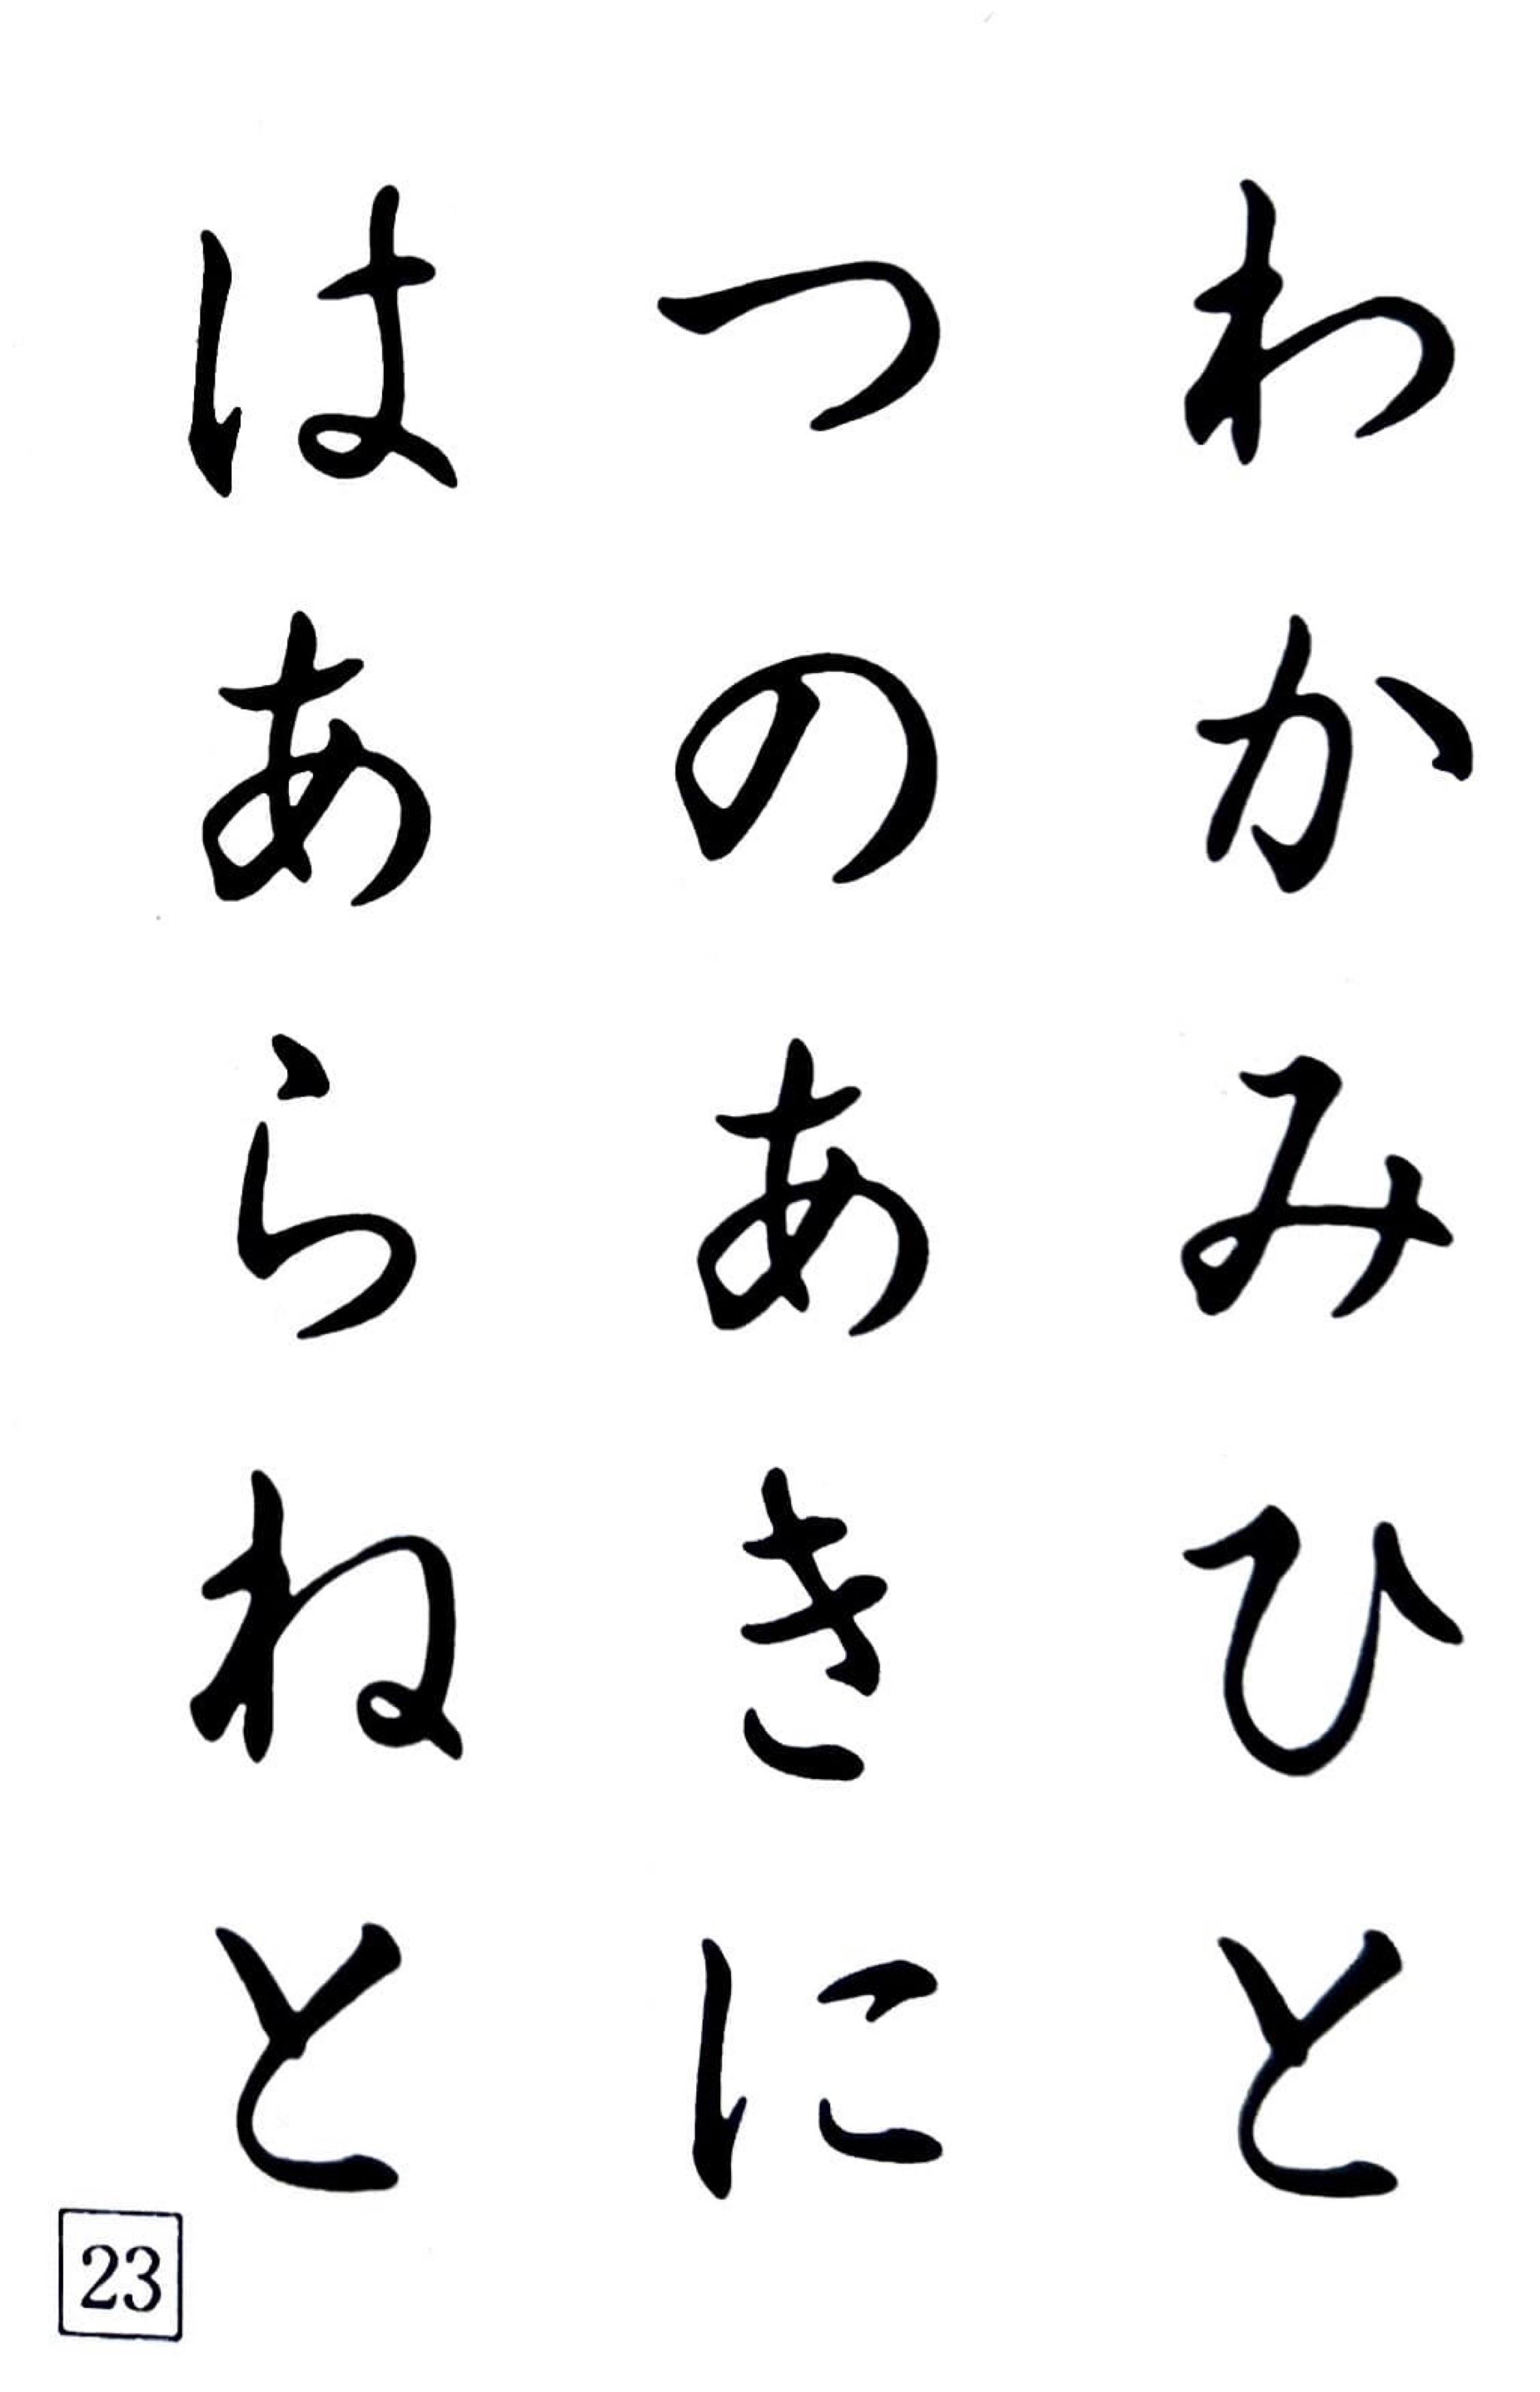 わかみひと
つのあきに
はあらねと
23